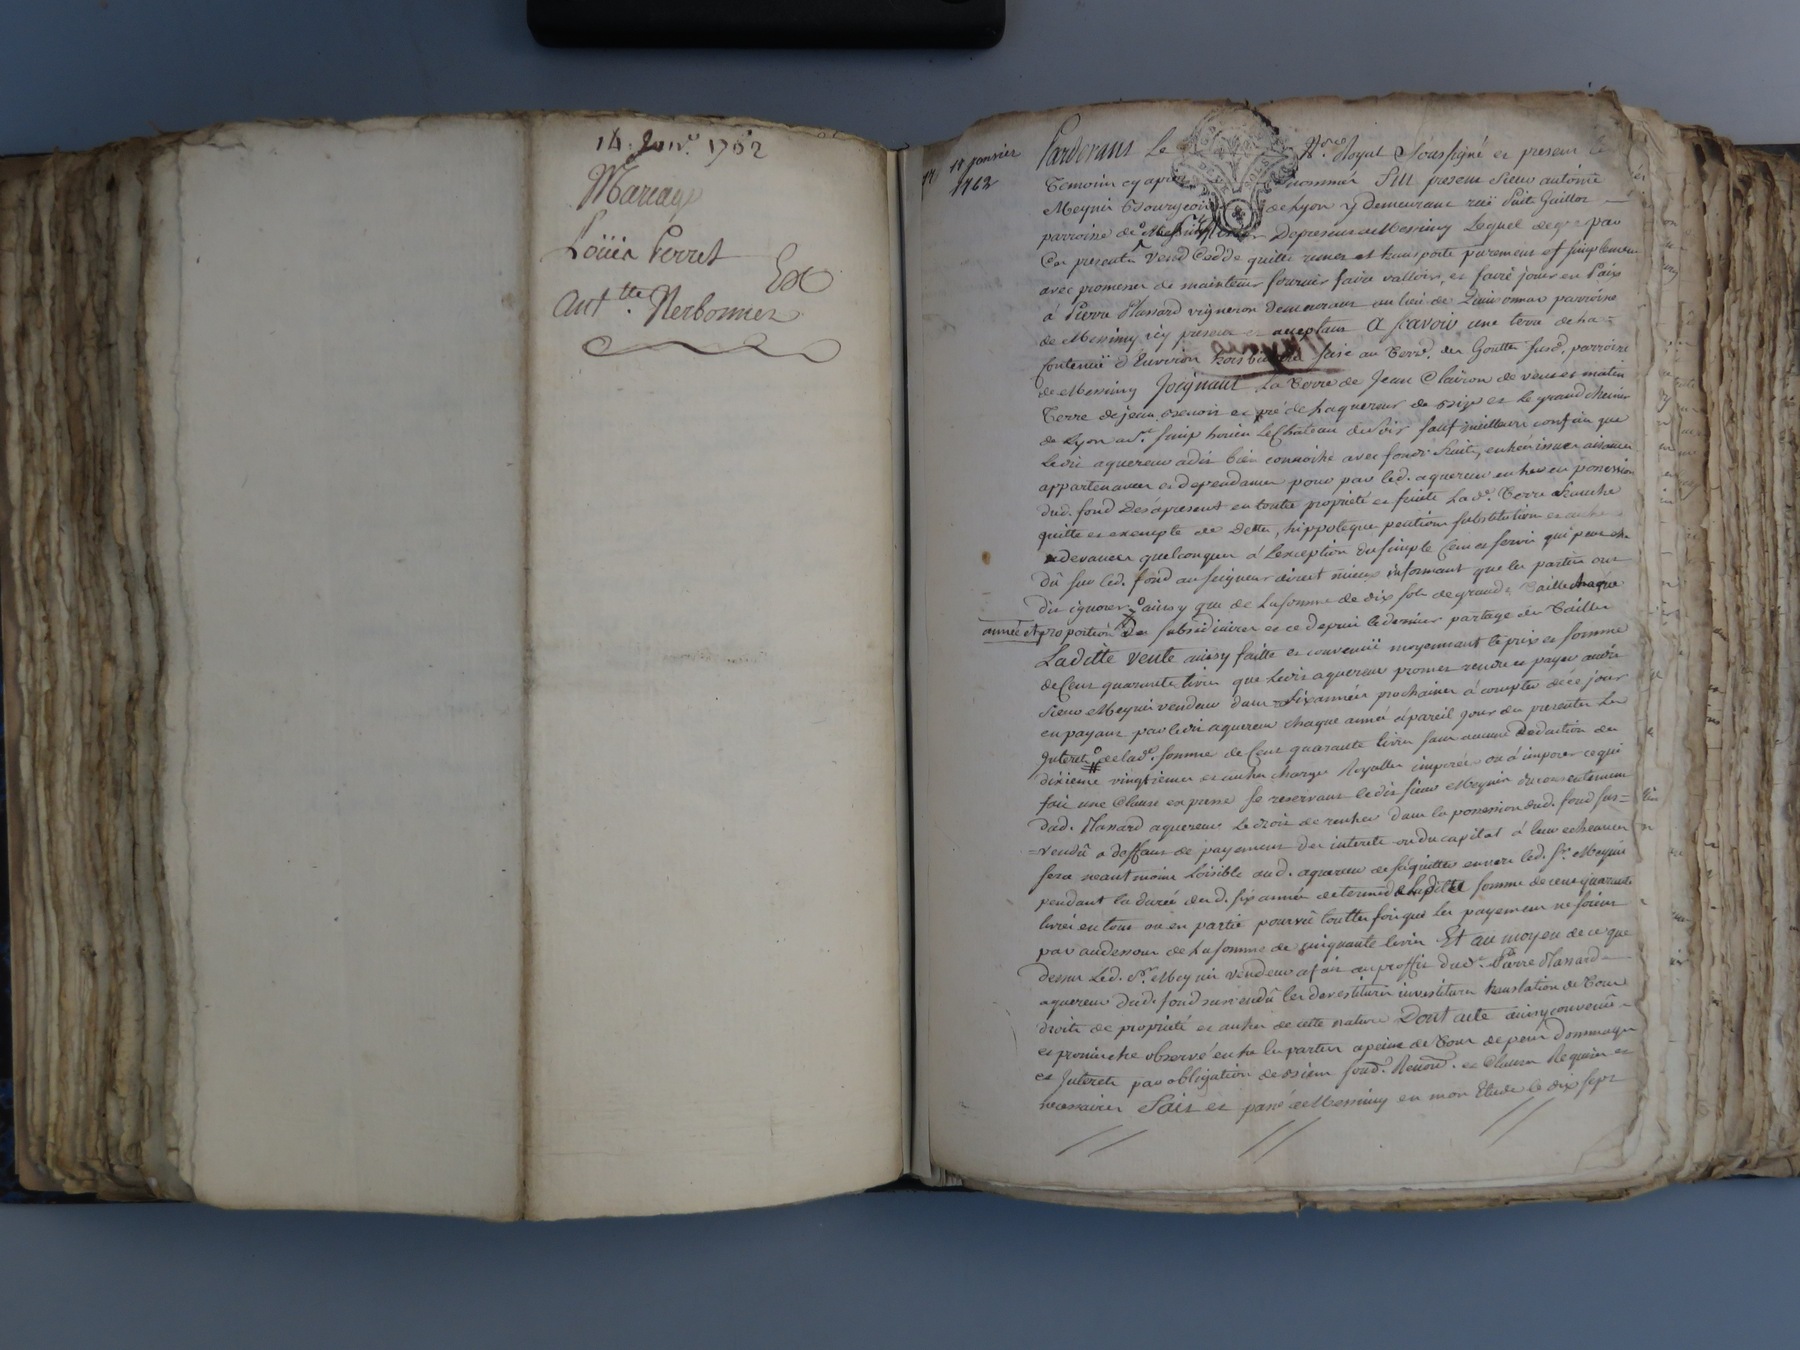 14. Janv.r 1762
Mariage
Loüis Perret
Ex
Ant.tte Nerbonnes
17 janvier
1762
Pardevant Le N.re Royal Soussigné et present
Temoins cy apres nommés fut present Sieur antoine
Meynis Bourgeois de Lyon y demeurant rüe Puit Gaillot
parroisse de Depresent a Messimy Lequel de gré par
Ces presentes vend Cedde quitte remet et transporte purement et simplement
avec promesse de maintenir fournir faire valloir, et faire jouir en Paix
à Pierre Massard vigneron demeurant au lieu de parroisse
de Messimy icy present et acceptant A scavoir une terre de la
Contenüe d'Environ sise au Terr. des Goutte susd. parroisse
de Messimy Joignant La Terre de Jean Clairon de vent et matin
Terre de jean et pré de Laquereur de bize et le grand chemin
de Lyon a Le Chateau de soir sauf meilleurs confins que
Ledit aquereur a dit bien connoitre avec fonds fruits, entrées issues aisances
appartenances et dependances pour par led. aquereur entrer en possession
dud. fond Des apresent en toutte proprieté et fruits Lad. Terre franche
quitte et exempte de Dettes, hippoteque pentions substitution et autres
redevances quelconques à Lexception du simple Cens et servis qui peut etre
dü sur led. fond au seigneur direct mieux informant que les parties ont
dit ignorer ainsy que de La somme de dix sols de grande Taille chaque
année et proportion Des subsidiaires et ce depuis le dernier partage des Tailles
Laditte vente ainsy faitte et convenüe moyennant le prix et somme
de Cent quarante livres que Ledit aquereur promet rendre et payer audit
Sieur Meynis vendeur dans six années prochaines à compter de ce jour
en payant par ledit aquereur chaque année à pareil jour des presentes Les
Interets de lad. somme de Cent quarante livres sans aucune Deduction des
dixieme vingtiemes et autres charges Royalles imposées ou à imposer ce qui
fait une Clause expresse se reservant ledit sieur Meynis du consentement
dud. Massard aquereur Le droit de rentrer dans la possession dud. fond sus=
=vendü a deffaut de payement des interets ou du capital à leurs echeances
sera neantmoins Loisible aud. aquereur de s'aquitter envers led. Sr. Meynis
pendant la durée desd. six années determinées de laditte somme de cent quarante
livres en tout ou en partie pourvû touttes fois que les payements ne soient
pas audessous de La somme de cinquante livres Et au moyen de ce que
dessus Led. Sr. Meynis vendeur a fait au proffit dud. Pierre Massard
aquereur dud. fond survendû les devestitures investitures translation de Tous
droits de proprieté et autres de cette nature Dont acte ainsy convenüe
et promis etre observé entre les parties a peine de Tous depens Dommages
et Interets par obligation de Biens soud. Renond. et Clauses Requises et
necessaires Fait et passé a Messimy en mon Etude le dix sept